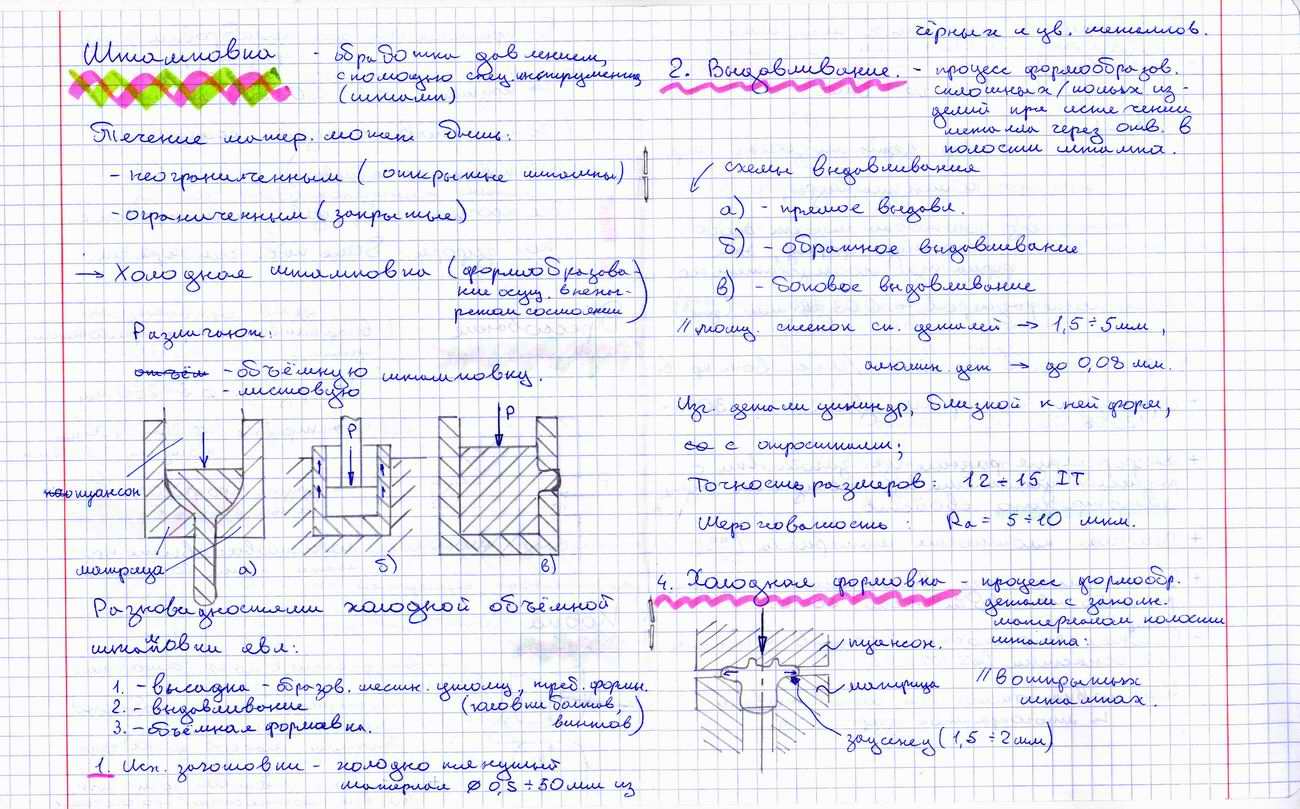 Штамповка - обработка давлением,
с помощью спец. инструмента
(штамп)
Течение матер. может быть:
- неограниченным (открытые штампы)
- ограниченным (закрытые)
→ Холодная штамповка (формообразова-
ние осущ. в наг-
ретом состоянии)
Различают:
- объёмную штамповку.
- листовую
P
P
пуансон
матрица
а)
б)
в)
Разновидностями холодной объёмной
штамповки явл:
1. - высадка - образов. местн. утолщ, треб. форм.
2. - выдавливание (головки болтов,
3. - объёмная формовка. винтов)
1. Исп. заготовки - холодно тянутый
материал ø 0,5 ÷ 50 мм из
чёрных и цв. металлов.
2. Выдавливание. - процесс формообразов.
сплошных/полых из-
делий при истечении
металла через отв. в
полости штампа.
схемы выдавливания
а) - прямое выдавл.
б) - обратное выдавливание
в) - боковое выдавливание
// толщ. стенок ст. деталей → 1,5 ÷ 5 мм,
алюмин. дет → до 0,08 мм.
Изг. детали цилиндр, близкой к ней форм,
с отростками;
Точность размеров: 12 ÷ 15 IT
Шероховатость: Ra = 5 ÷ 10 мкм.
4. Холодная формовка - процесс формообр.
детали с заполн.
материалом полости
штампа:
пуансон.
матрица
// в открытых
штампах.
заусенец (1,5 ÷ 2 мм)